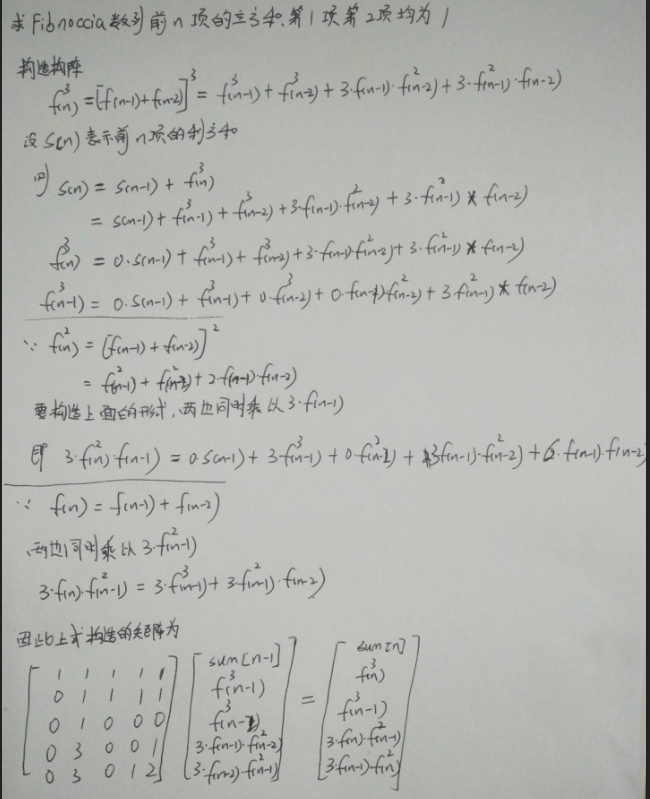 求Fibnoccia数列前n项的立方和,第1项第2项均为1
构造构阵
f³(n) = [f(n-1)+f(n-2)]³ = f³(n-1) + f³(n-2) + 3·f(n-1)·f²(n-2) + 3·f²(n-1)·f(n-2)
设S(n)表示前n项的立方和
则 S(n) = S(n-1) + f³(n)
= S(n-1) + f³(n-1) + f³(n-2) + 3·f(n-1)·f²(n-2) + 3·f²(n-1) * f(n-2)
f³(n) = 0·S(n-1) + f³(n-1) + f³(n-2) + 3·f(n-1)·f²(n-2) + 3·f²(n-1) * f(n-2)
f³(n-1) = 0·S(n-1) + f³(n-1) + 0·f³(n-2) + 0·f(n-1)·f²(n-2) + 3·f²(n-1) * f(n-2)
∵ f²(n) = [f(n-1) + f(n-2)]²
= f²(n-1) + f²(n-2) + 2·f(n-1)·f(n-2)
要构造上面的形式,两边同时乘以3·f(n-1)
即 3·f²(n)·f(n-1) = 0·S(n-1) + 3·f³(n-1) + 0·f³(n-2) + 3f(n-1)·f²(n-2) + 6·f(n-1)·f(n-2)
∵ f(n) = f(n-1) + f(n-2)
两边同时乘以3·f²(n-1)
3·f(n)·f²(n-1) = 3·f³(n-1) + 3·f²(n-1)·f(n-2)
因此上式构造的矩阵为
1 1 1 1 1 sum[n-1] sum[n]
0 1 1 1 1 f³(n-1) f³(n)
0 1 0 0 0 f³(n-2) = f³(n-1)
0 3 0 0 1 3·f(n-1)·f²(n-2) 3·f(n)·f²(n-1)
0 3 0 1 2 3·f(n-2)·f²(n-1) 3·f(n-1)·f²(n)